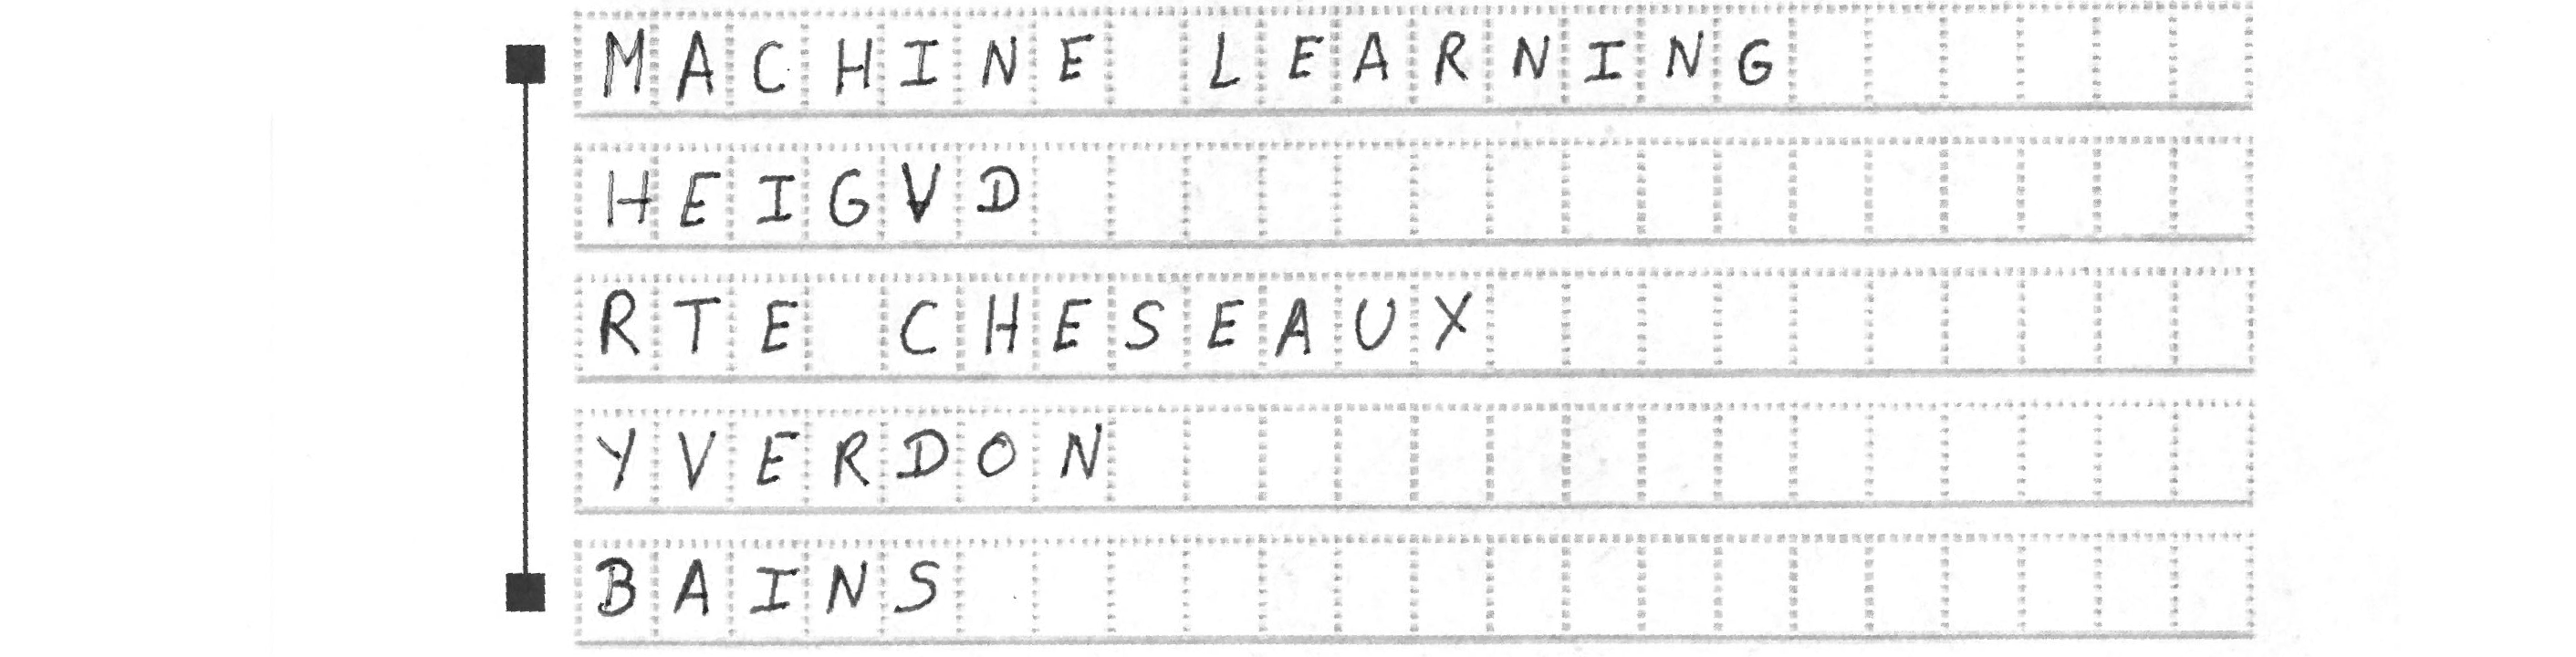 MACHINE LEARNING
HEIGVD
RTE CHESEAUX
YVERDON
BAINS